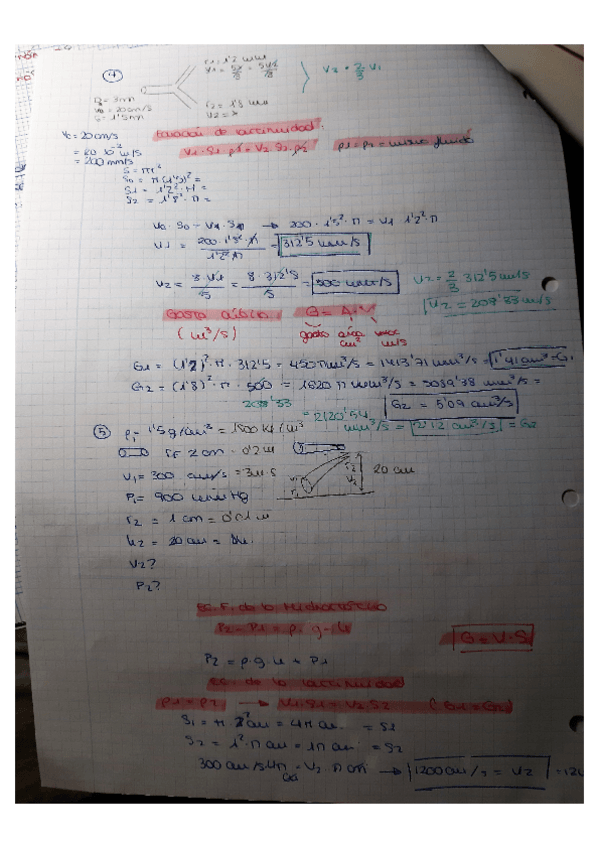 ④ r1 = 1'2 mm
V1 = 5V2/8 V2 = 2/3 V1
r2 = 1'8 mm
V2 = ?
V0 = 20 cm/s
V0 = 20 cm/s Ecuación de continuidad:
= 20 · 10⁻² m/s V1 · S1 · ρ1 = V2 · S2 · ρ2 ρ1 = ρ2 = mismo fluido
= 200 mm/s
S = πr²
S0 = π(1'5)² =
S1 = 1'2² · π =
S2 = 1'8² · π =
V0 · S0 = V1 · S1 → 200 · 1'5² · π = V1 · 1'2² · π
V1 = 200 · 1'5² · π / 1'2² · π = 312'5 mm/s
V2 = 8 · V1 / 5 = 8 · 312'5 / 5 = 500 mm/s V2 = 2/3 312'5 mm/s
V2 = 208'33 mm/s
Gasto cúbico: G = A · V
(m³/s) gasto área
cm² m/s
G1 = (1'2)² · π · 312'5 = 450 π mm³/s = 1413'71 mm³/s = 1'41 cm³ = G1
G2 = (1'8)² · π · 500 = 1620 π mm³/s = 5089'38 mm³/s =
208'33 G2 = 5'09 cm³/s
= 2120'54 mm³/s = 2'12 cm³/s = G2
⑤ ρ1 = 1'5 g/cm³ = 1500 kg/m³
r = 2 cm
V1 = 300 cm/s = 3 m/s 20 cm
P1 = 900 mm Hg
r2 = 1 cm = 0'01 m
h2 = 20 cm
V2?
P2?
Ec. F. de la Hidrostática
P2 - P1 = ρ · g · h G = V · S
P2 = ρ · g · h + P1
Ec. de la continuidad
ρ1 = ρ2 → V1 · S1 = V2 · S2 (G1 = G2)
S1 = π · 2² cm = 4π cm = S1
S2 = 1² · π cm = 1π cm = S2
300 cm/s · 4π cm = V2 · π cm → 1200 cm/s = V2